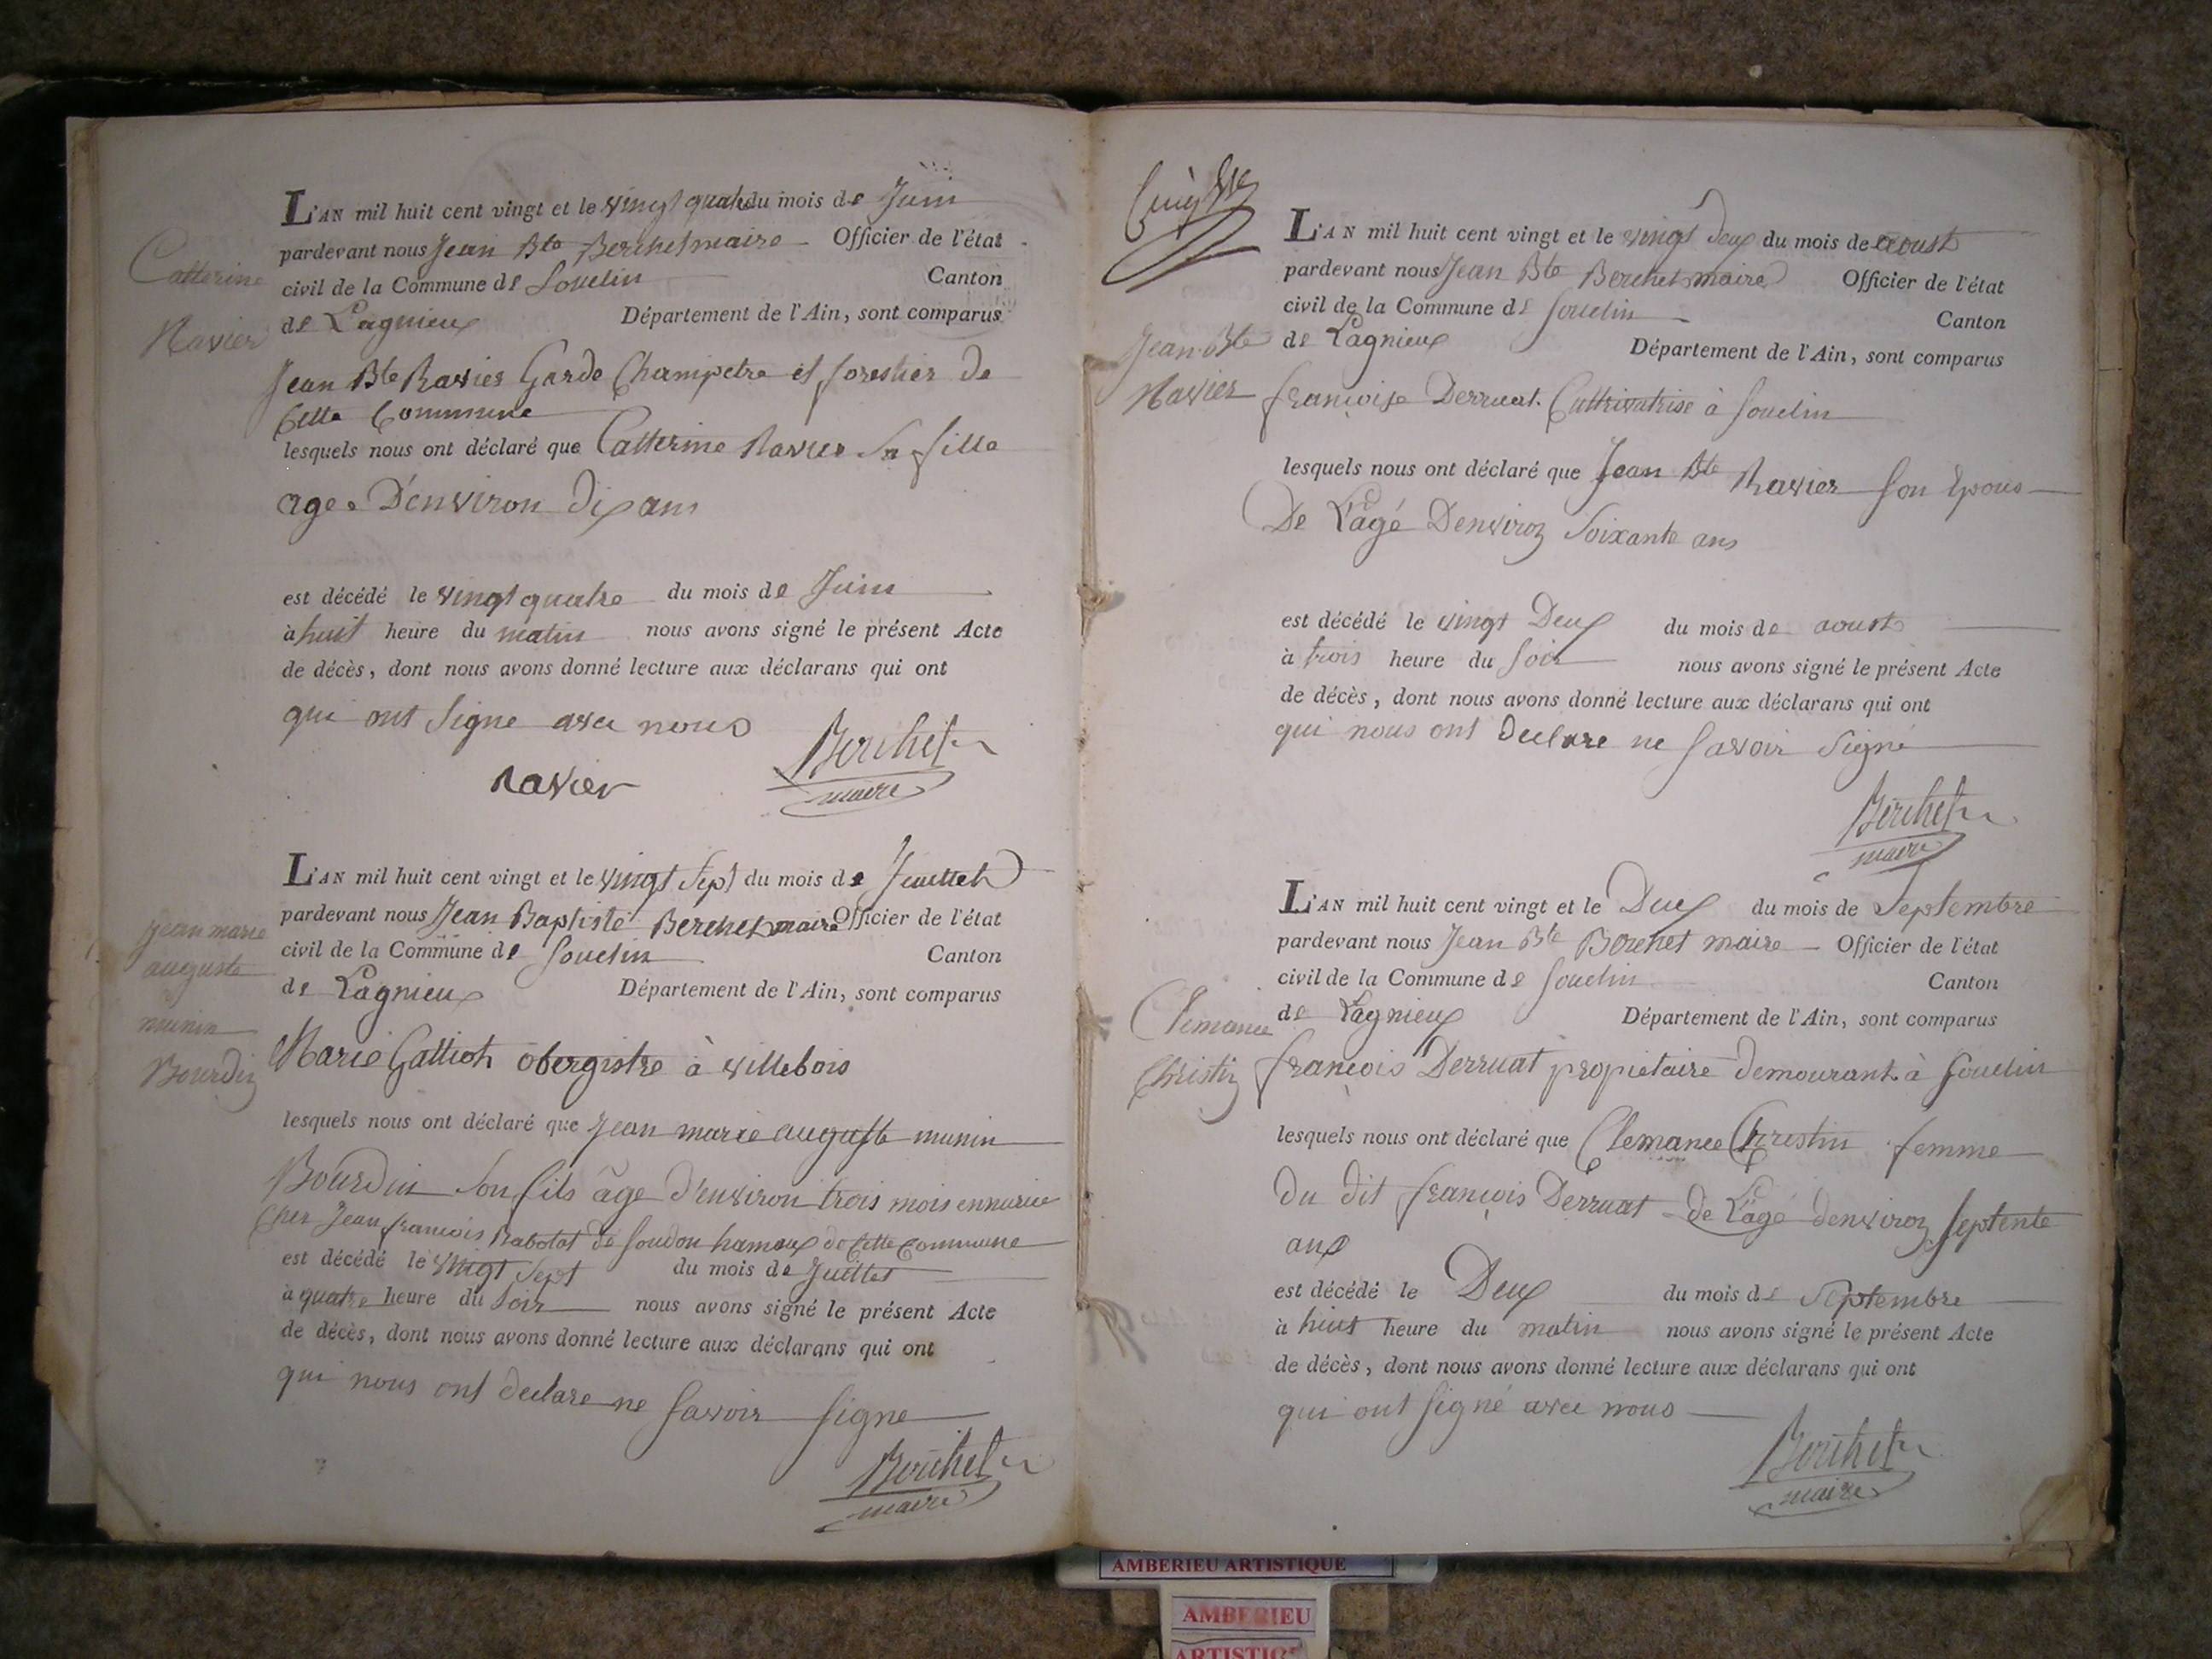 Catterine
Ravier
L'AN mil huit cent vingt et le vingt quatre du mois de Juin
pardevant nous Jean Bte Berchet maire Officier de l'état
civil de la Commune de Souclin Canton
de Lagnieux Département de l'Ain, sont comparus
Jean Bte Ravier Garde Champetre et forestier de
Cette Commune
lesquels nous ont déclaré que Catterine Ravier Sa fille
age D'environ dix ans
est décédé le vingt quatre du mois de Juin
à huit heure du matin nous avons signé le présent Acte
de décès, dont nous avons donné lecture aux déclarans qui ont
qui ont Signe avec nous
Ravier Berchet
maire
jean marie
auguste
munin
Bourdin
L'AN mil huit cent vingt et le vingt Sept du mois de Juillet
pardevant nous Jean Baptiste Berchet maire Officier de l'état
civil de la Commune de Souclin Canton
de Lagnieux Département de l'Ain, sont comparus
Marie Gattiot obergistre à villebois
lesquels nous ont déclaré que Jean marie auguste munin
Bourdin Son fils âge d'environ trois mois en nurice
Cher Jean francois Rabotot de Soudon hamaux de Cette Commune
est décédé le vingt Sept du mois de Juillet
à quatre heure du Soir nous avons signé le présent Acte
de décès, dont nous avons donné lecture aux déclarans qui ont
qui nous ont declare ne Savoir Signe
Berchet
maire
Jean Bte
Ravier
L'AN mil huit cent vingt et le vingt Deux du mois de aoust
pardevant nous Jean Bte Berchet maire Officier de l'état
civil de la Commune de Souclin Canton
de Lagnieux Département de l'Ain, sont comparus
françoise Derruat Cultrivatrise à Souclin
lesquels nous ont déclaré que Jean Bte Ravier Son Epous
De L'agé D'environ Soixante ans
est décédé le vingt Deux du mois de aoust
à trois heure du Soir nous avons signé le présent Acte
de décès, dont nous avons donné lecture aux déclarans qui ont
qui nous ont Declare ne Savoir Signé
Berchet
maire
Clemance
Christin
L'AN mil huit cent vingt et le Deux du mois de Septembre
pardevant nous Jean Bte Berchet maire Officier de l'état
civil de la Commune de Souclin Canton
de Lagnieux Département de l'Ain, sont comparus
françois Derruat propietaire demourant à Souclin
lesquels nous ont déclaré que Clemance Chrestin femme
du dit françois Derruat de L'agé denviron Septente
ans
est décédé le Deux du mois de Septembre
à huit heure du matin nous avons signé le présent Acte
de décès, dont nous avons donné lecture aux déclarans qui ont
qui ont Signé avec nous
Berchet
maire
AMBERIEU ARTISTIQUE
AMBERIEU
ARTISTIQUE